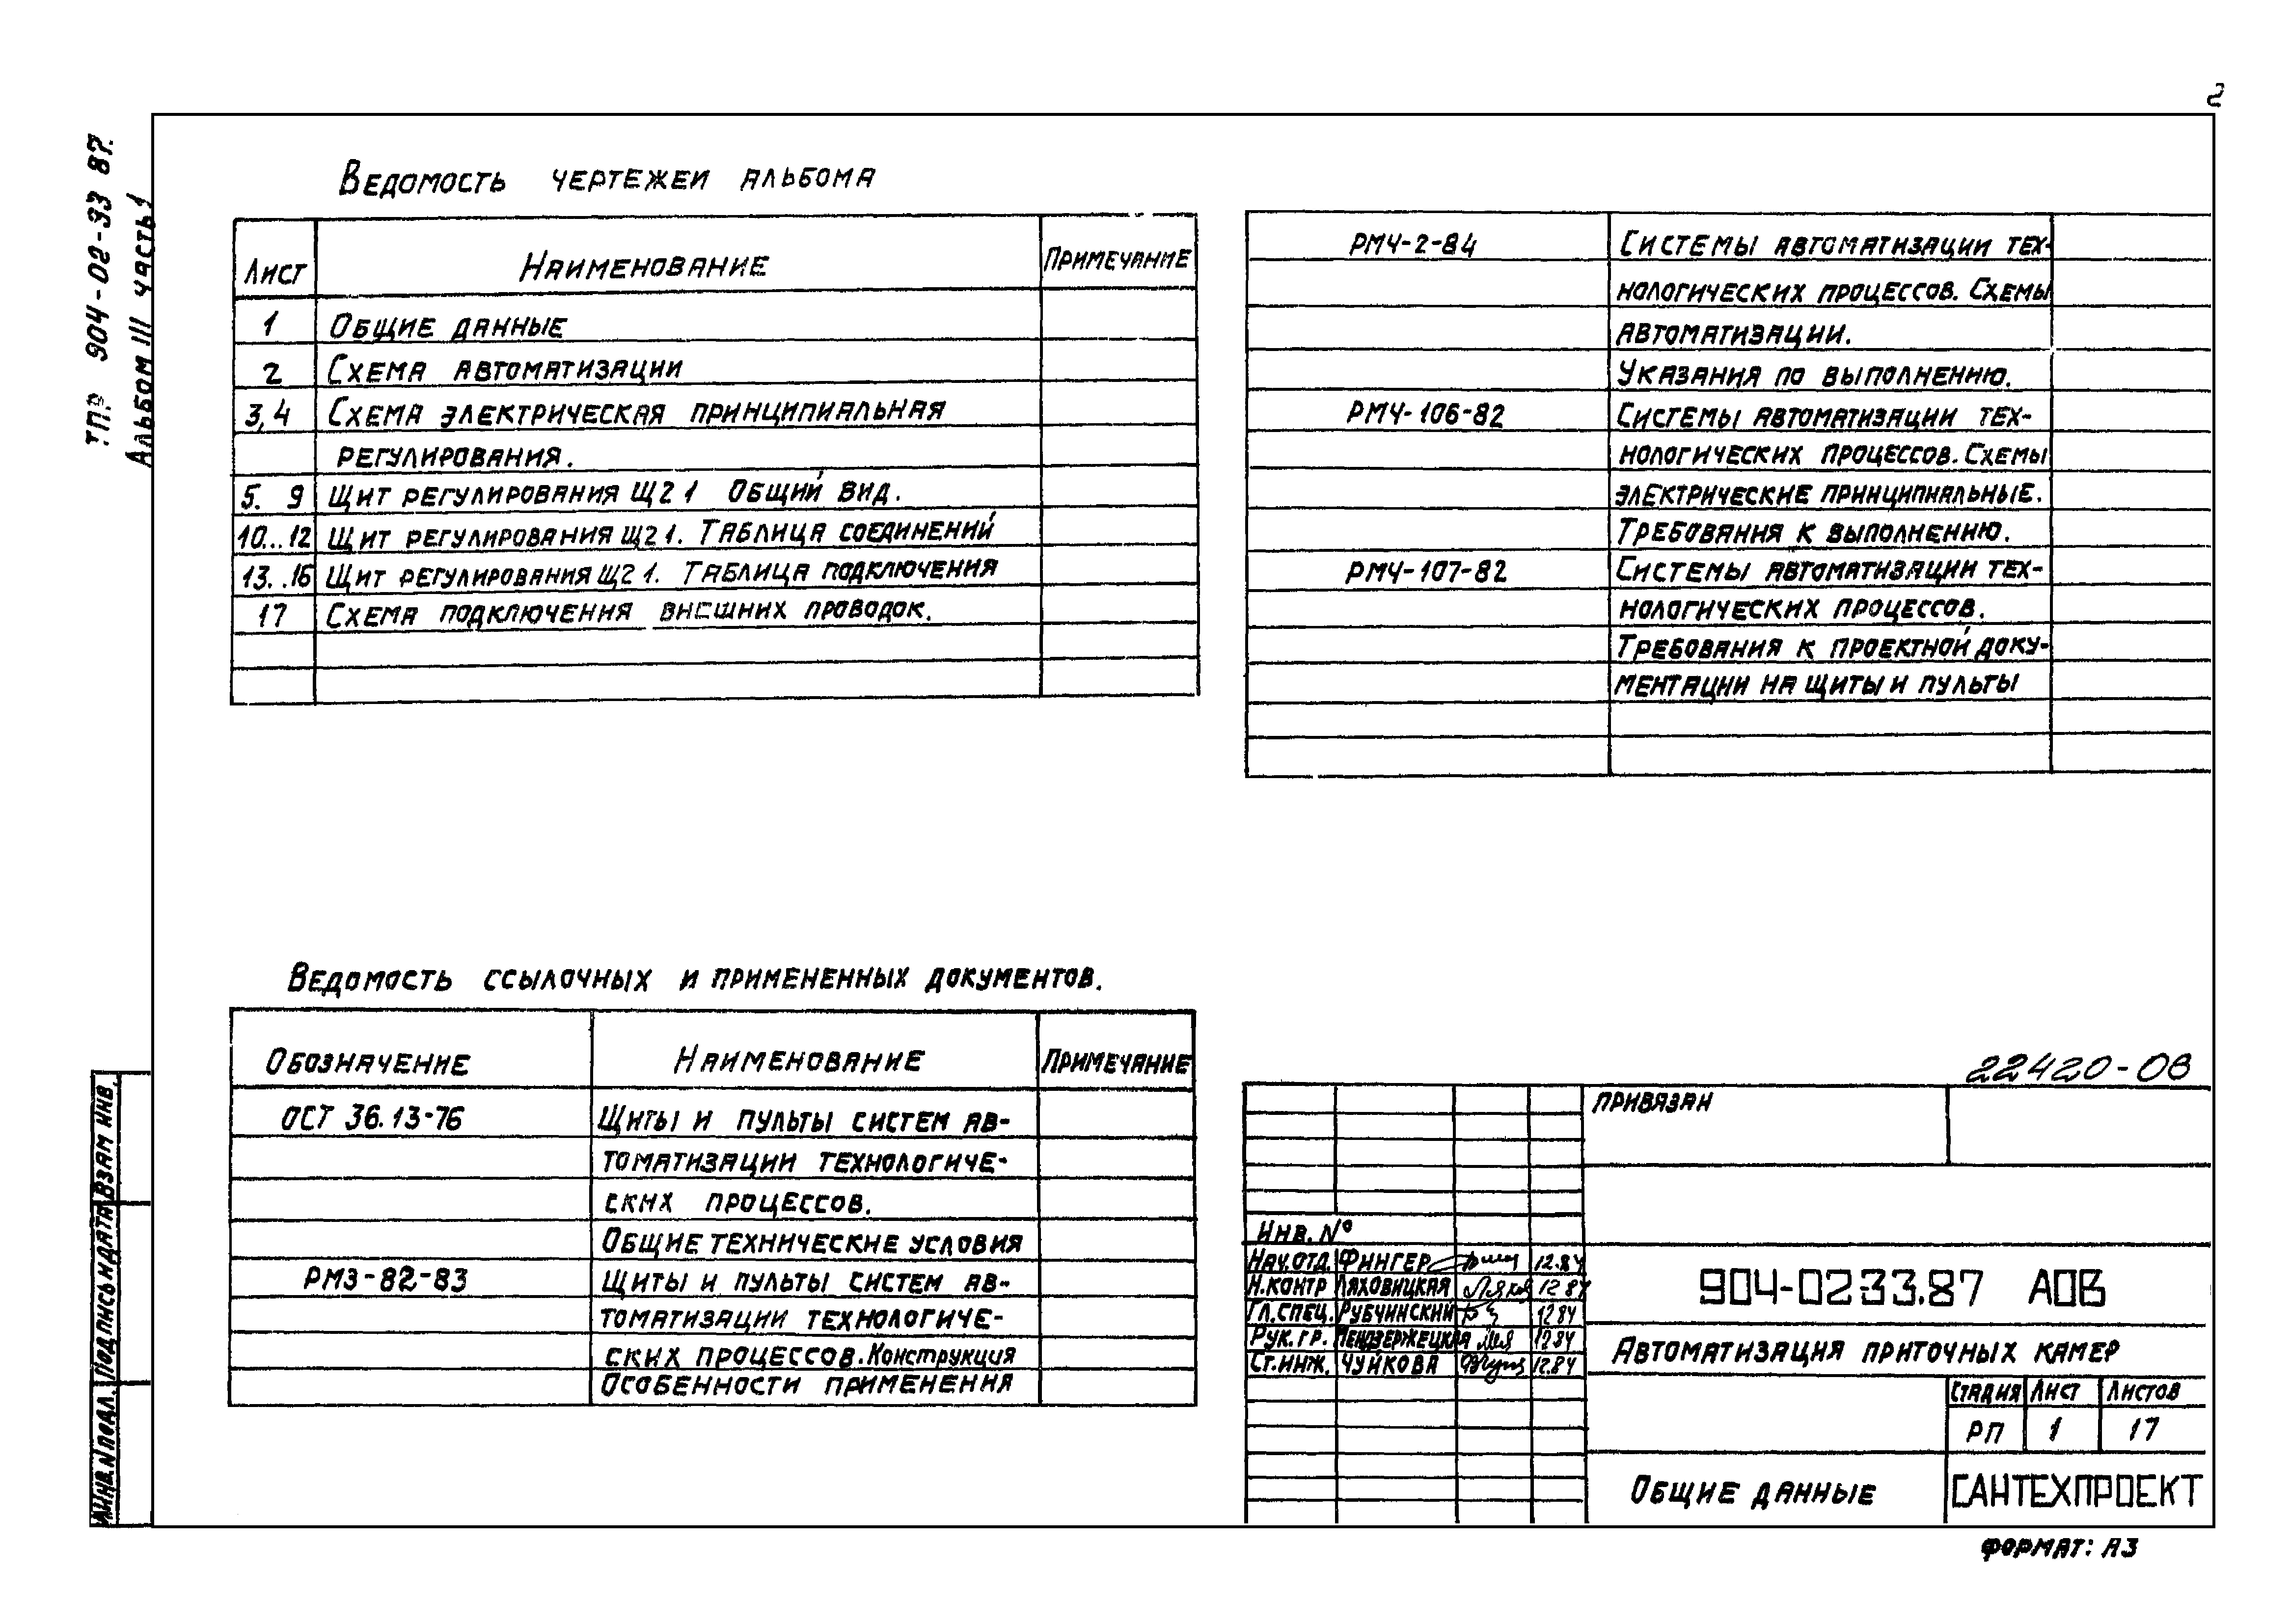 2
ТПР 904-02-33 87.
Альбом III часть 1
Ведомость чертежей альбома
Лист Наименование Примечание
1 Общие данные
2 Схема автоматизации
3,4 Схема электрическая принципиальная
регулирования.
5. 9 Щит регулирования Щ2 1 Общий вид.
10...12 Щит регулирования Щ2 1. Таблица соединений
13. .16 Щит регулирования Щ2 1. Таблица подключения
17 Схема подключения внешних проводок.
РМ4-2-84 Системы автоматизации тех-
нологических процессов. Схемы
автоматизации.
Указания по выполнению.
РМ4-106-82 Системы автоматизации тех-
нологических процессов. Схемы
электрические принципиальные.
Требования к выполнению.
РМ4-107-82 Системы автоматизации тех-
нологических процессов.
Требования к проектной доку-
ментации на щиты и пульты
Ведомость ссылочных и примененных документов.
Обозначение Наименование Примечание
ОСТ 36.13-76 Щиты и пульты систем ав-
томатизации технологиче-
ских процессов.
Общие технические условия
РМ3-82-83 Щиты и пульты систем ав-
томатизации технологиче-
ских процессов. Конструкция
Особенности применения
22420-08
Привязан
Инв. №
Нач.отд. Фингер 12.84
Н.контр Ляховицкая 12 84
Гл.спец. Рубчинский 12 84
Рук. гр. 12 84
Ст.инж. Чуйкова 12.84
904-02 33.87 АОВ
Автоматизация приточных камер
Стадия Лист Листов
РП 1 17
Общие данные
САНТЕХПРОЕКТ
Взам инв.
Подпись и дата
Инв. N подл.
Формат: А3